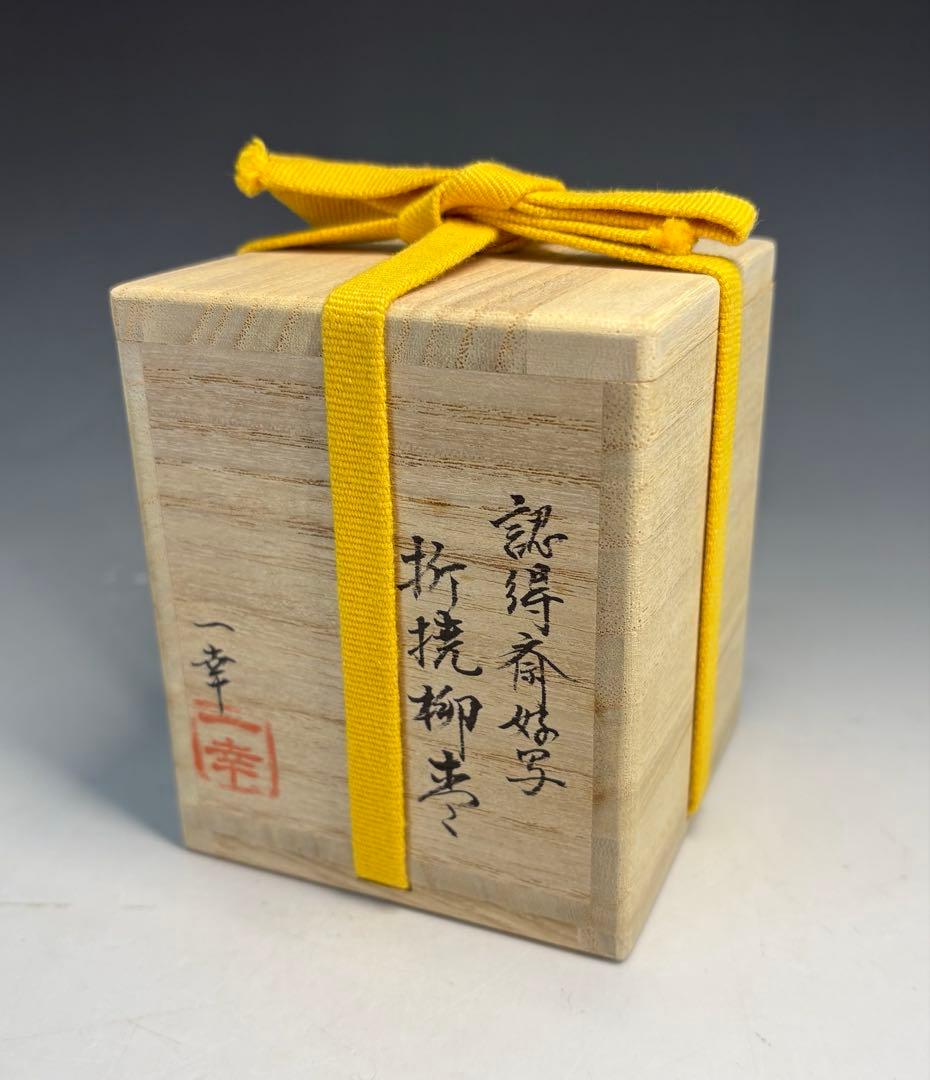 認得斎好写
折撓柳棗
一幸
一幸